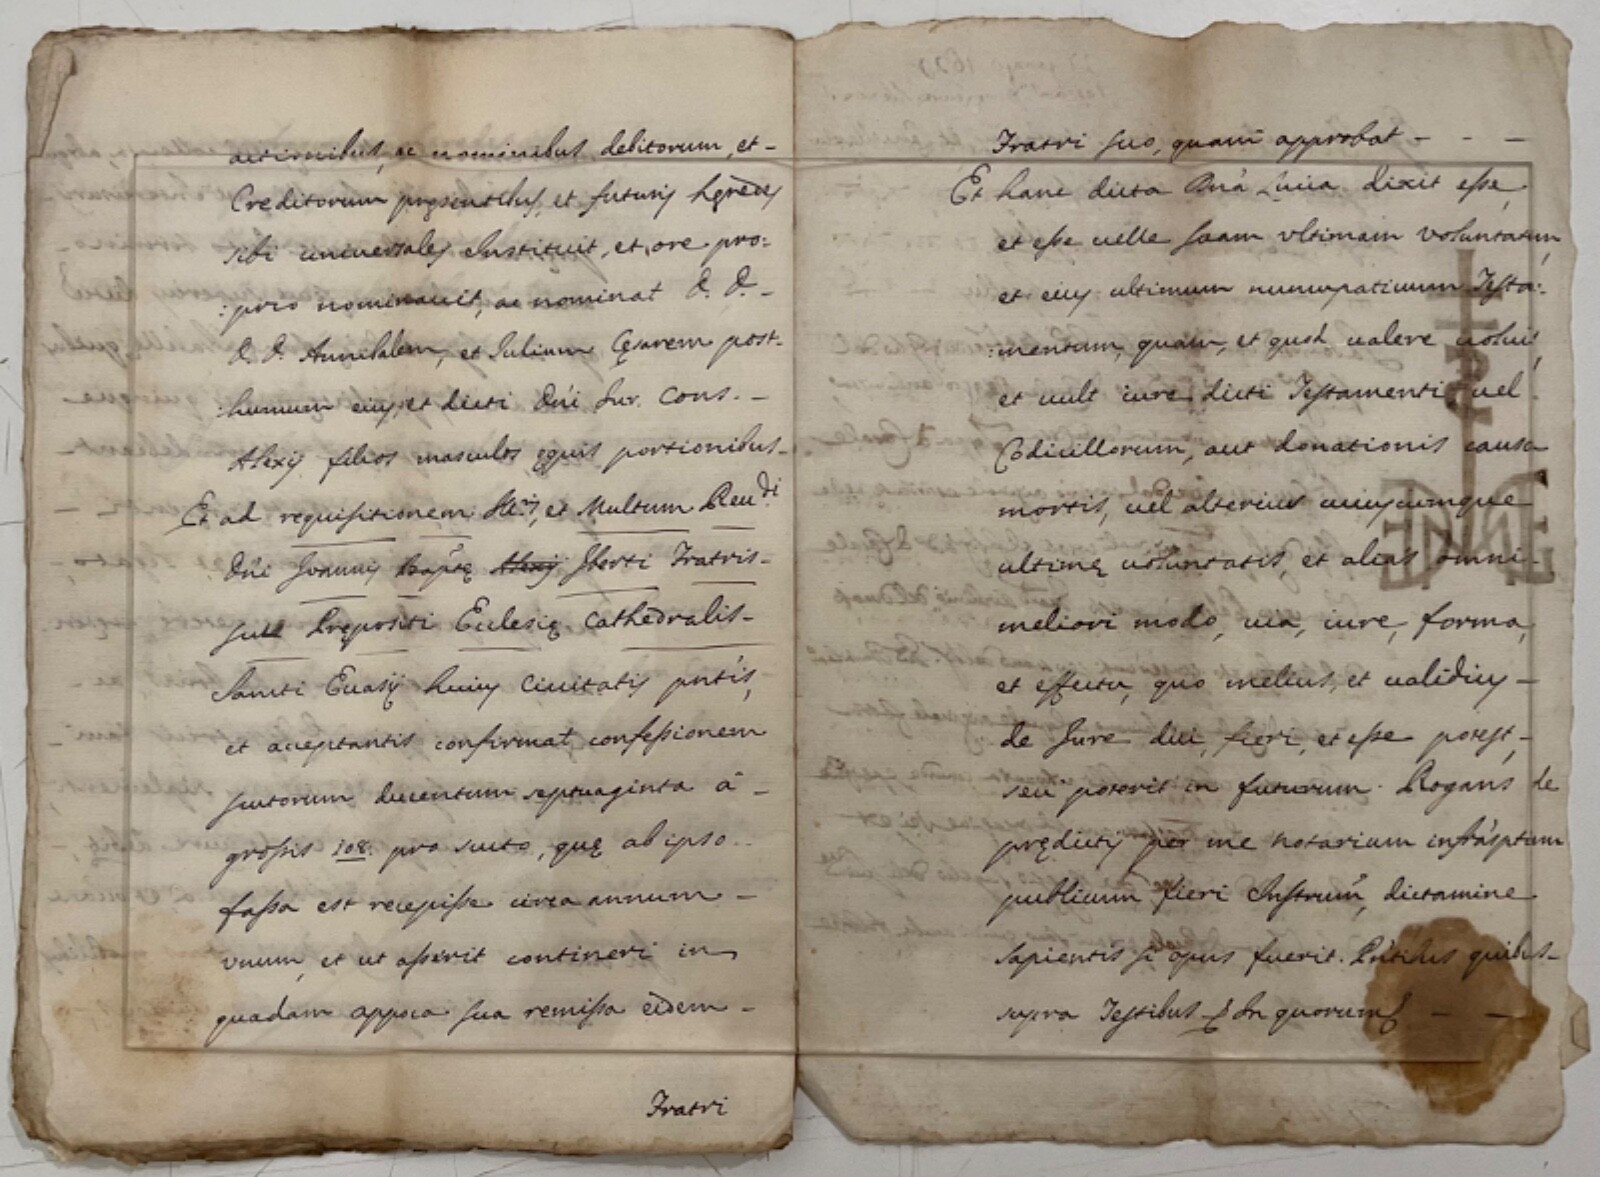 actionibus, ac nominibus debitorum, et -
Creditorum pręsentibus, et futuris hęredes
sibi universales Instituit, et ore pro:
:prio nominavit, ac nominat D. D. -
D. D. Annibalem, et Iulium Cęsarem post-
:humum eius, et dicti Dni Iur. Cons. -
Alexij filios masculos ęquis portionibus -
Et ad requisitionem et Multum Reu.di
Dni Joannis Baptę Alexij Iberti Fratris -
sui Prępositi Eclesię Cathedralis -
Sancti Euasij huius Ciuitatis pntis,
et acceptantis confirmat confessionem
scutorum ducentum septuaginta a -
grossis 108. pro scuto, quę ab ipso..
fassa est recepisse circa annum -
vnum, et ut asserit contineri in
quadam appoca sua remissa eidem -
Fratri
Fratri suo, quam approbat - - -
Et hanc dicta Anà Lucia dixit esse,
et esse uelle suam vltimam voluntatem,
et eius ultimum nuncupatiuum Testa:
:mentum, quam, et quod ualere uoluit,
et uult iure dicti Testamenti, uel
Codicillorum, aut donationis causa
mortis, uel alterius cuiuscumque
ultimę uoluntatis, et alias omni -
meliori modo, uia, iure, forma,
et effectu, quo melius, et validius -
de Jure dici, fieri, et esse potest, -
seu poterit in futurum. Rogans de
prędictis per me notarium infrasptum
publicum fieri Instrum, dictamine
sapientis si opus fuerit. Pntibus quibus -
supra Testibus In quorum - -